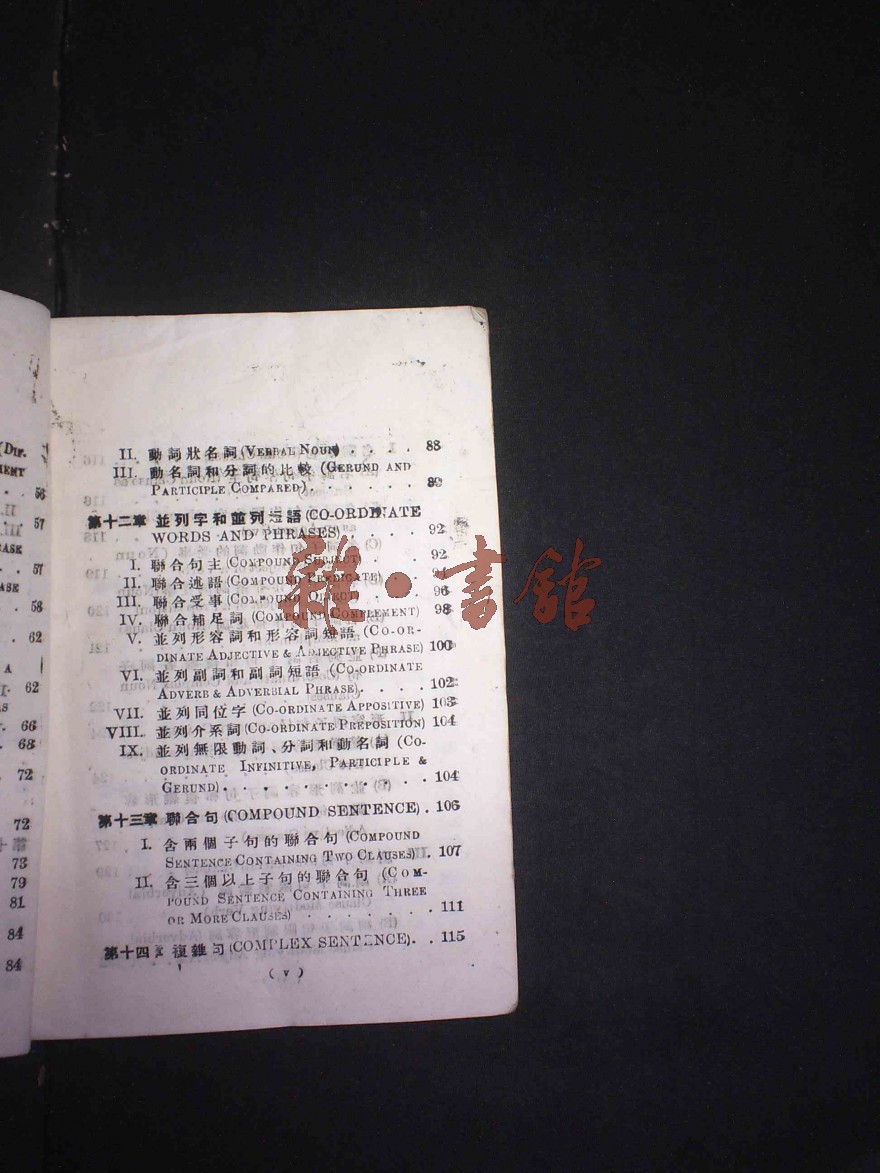 (DIF.
MENT
56
57
RASE
57
ASE
58
62
A
62
66
68
72
72
73
79
81
84
84
II. 動詞狀名詞 (VERBAL NOUN) . . . . 88
III. 動名詞和分詞的比較 (GERUND AND
PARTICIPLE COMPARED) . . . . . . 89
第十二章 並列字和並列短語 (CO-ORDINATE
WORDS AND PHRASES) . . . . 92
I. 聯合句主 (COMPOUND SUBJECT) . . . 92
II. 聯合述語 (COMPOUND PREDICATE) . . 94
III. 聯合受事 (COMPOUND OBJECT) . . . 96
IV. 聯合補足詞 (COMPOUND COMPLEMENT) 98
V. 並列形容詞和形容詞短語 (CO-OR-
DINATE ADJECTIVE & ADJECTIVE PHRASE) 100
VI. 並列副詞和副詞短語 (CO-ORDINATE
ADVERB & ADVERBIAL PHRASE) . . . . 102
VII. 並列同位字 (CO-ORDINATE APPOSITIVE) 103
VIII. 並列介系詞 (CO-ORDINATE PREPOSITION) 104
IX. 並列無限動詞、分詞和動名詞 (CO-
ORDINATE INFINITIVE, PARTICIPLE &
GERUND) . . . . . . . . . . 104
第十三章 聯合句 (COMPOUND SENTENCE) . 106
I. 含兩個子句的聯合句 (COMPOUND
SENTENCE CONTAINING TWO CLAUSES) . 107
II. 含三個以上子句的聯合句 (COM-
POUND SENTENCE CONTAINING THREE
OR MORE CLAUSES) . . . . . . . 111
第十四章 複雜句 (COMPLEX SENTENCE) . . 115
( v )
雜·書館